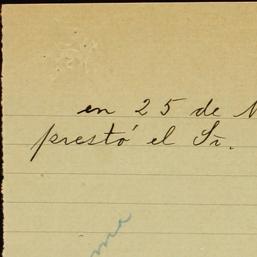 en 25 de N
prestó el Sr.